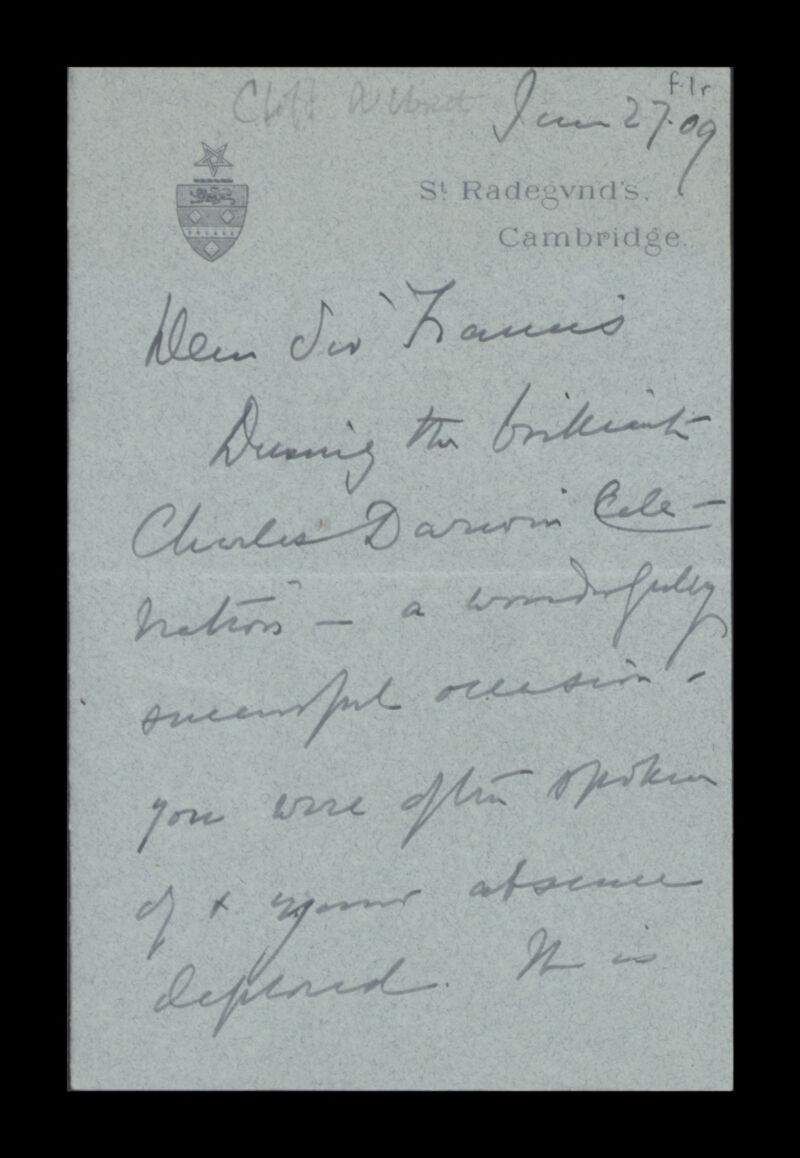 f.1r
Cliff Allbutt
June 27.09
St Radegvnd's,
Cambridge.
Dear Sir Francis
During the brilliant
Charles Darwin Cele-
bration — a wonderfully
successful occasion -
you were often spoken
of & your absence
deplored. It is